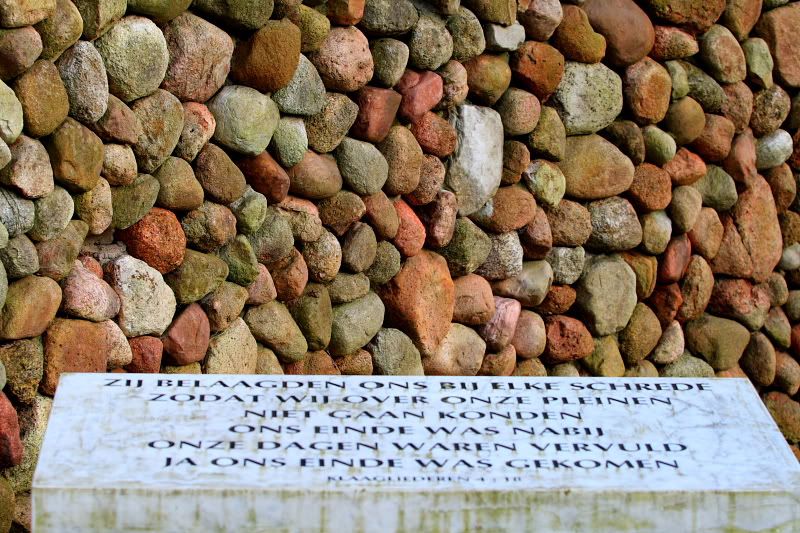 ZIJ BELAAGDEN ONS BIJ ELKE SCHREDE
ZODAT WIJ OVER ONZE PLEINEN
NIET GAAN KONDEN
ONS EINDE WAS NABIJ
ONZE DAGEN WAREN VERVULD
JA ONS EINDE WAS GEKOMEN
KLAAGLIEDEREN 4 : 18